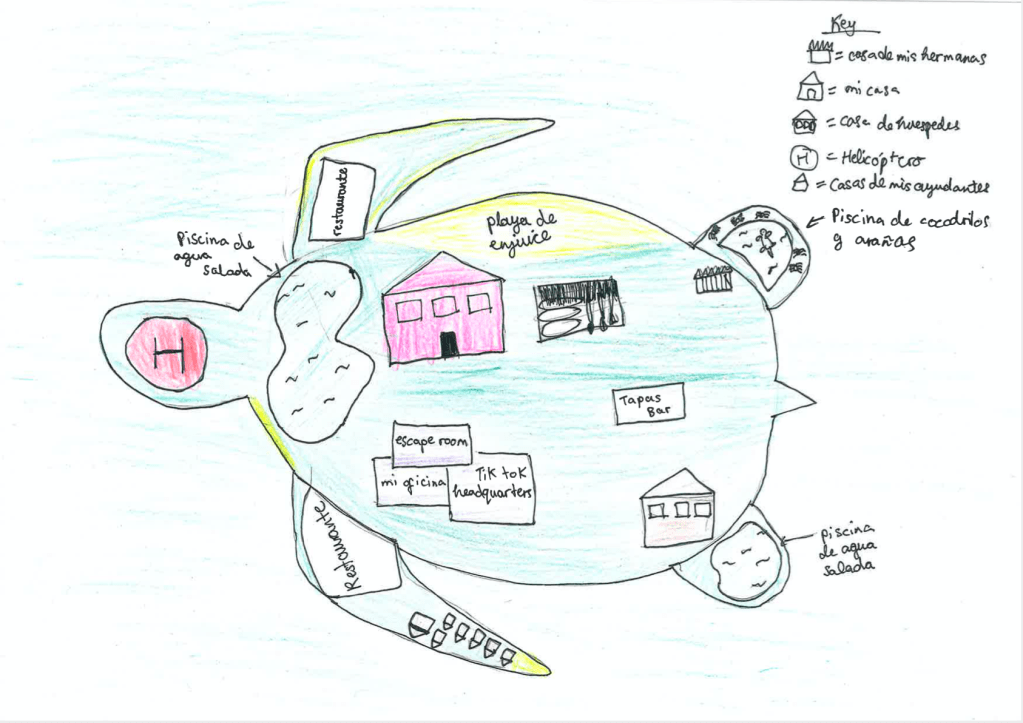 Key
= casa de mis hermanas
= mi casa
= casa de huespedes
H = Helicóptero
= Casas de mis ayudantes
Piscina de cocodrilos
y arañas
restaurante
playa de
enjuice
Piscina de
agua
salada
H
Tapas
Bar
escape room
mi oficina
Tik tok
headquarters
Restaurante
piscina
de agua
salada